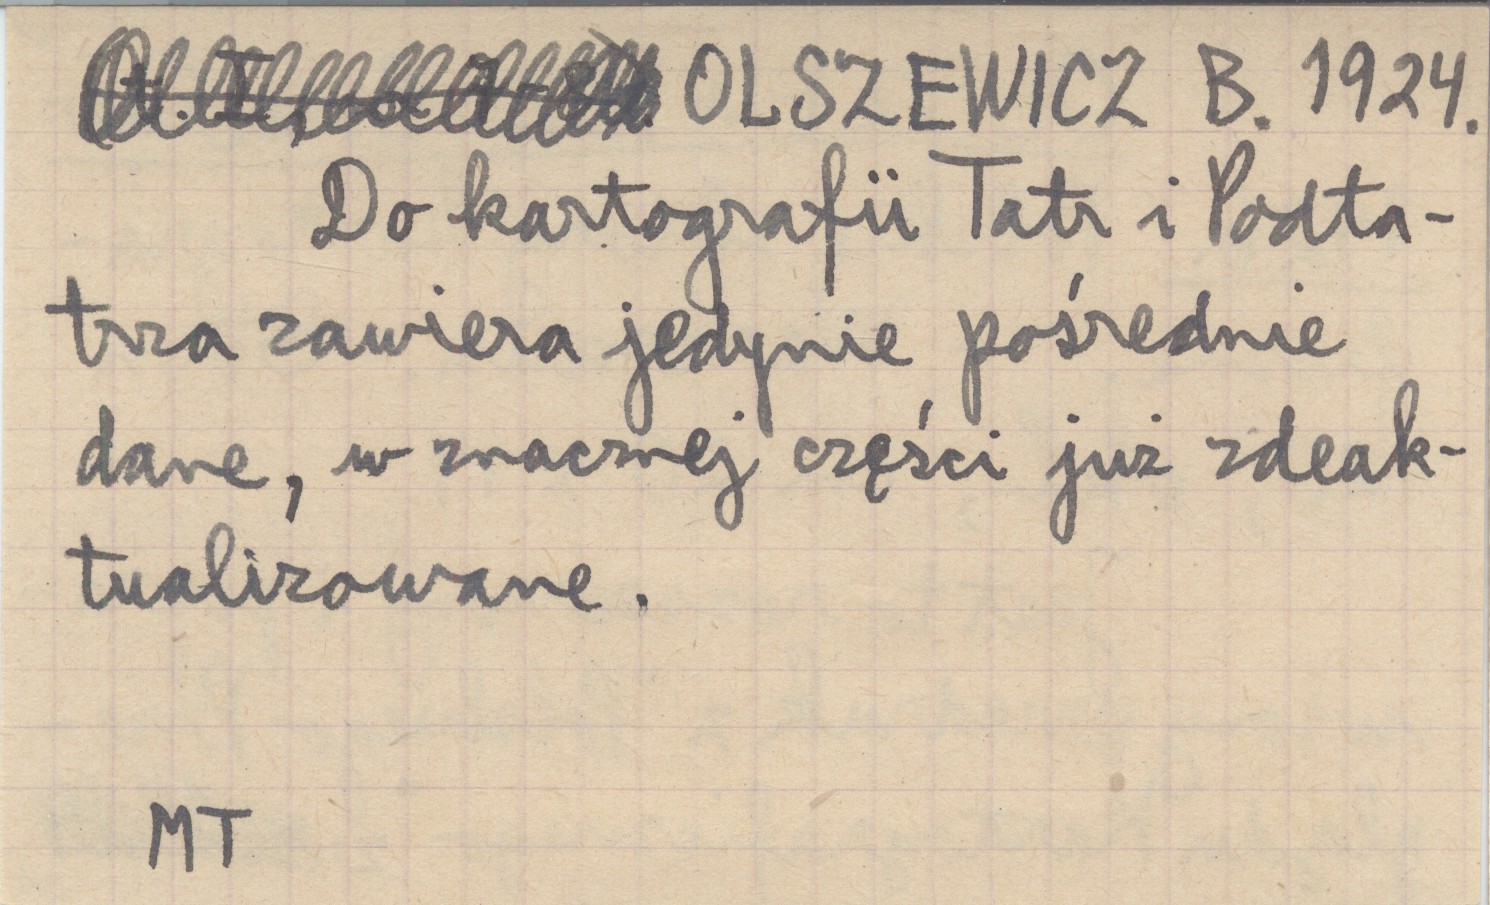 OLSZEWICZ B. 1924.
Do kartografii Tatr i Podta-
trza zawiera jedynie pośrednie
dane, w znacznej części już zdeak-
tualizowane.
MT